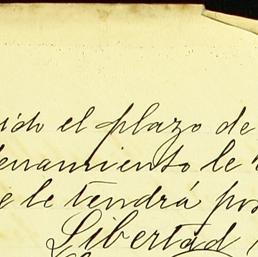 ido el plazo de
denamiento le
e le tendrá por
Libertad